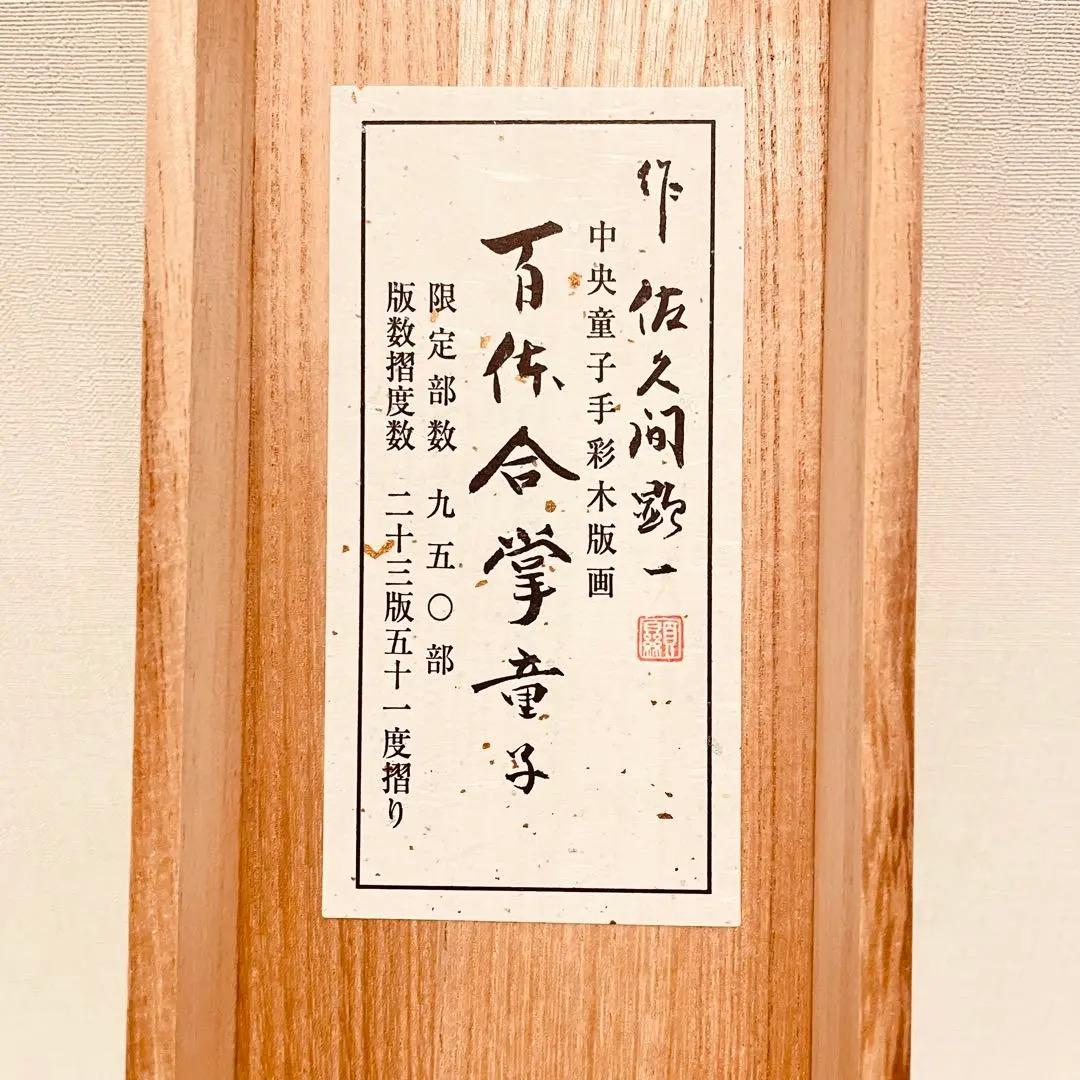 作 佐久間顕一
中央童子手彩木版画
百体合掌童子
限定部数 九五〇部
版数摺度数 二十三版五十一度摺り